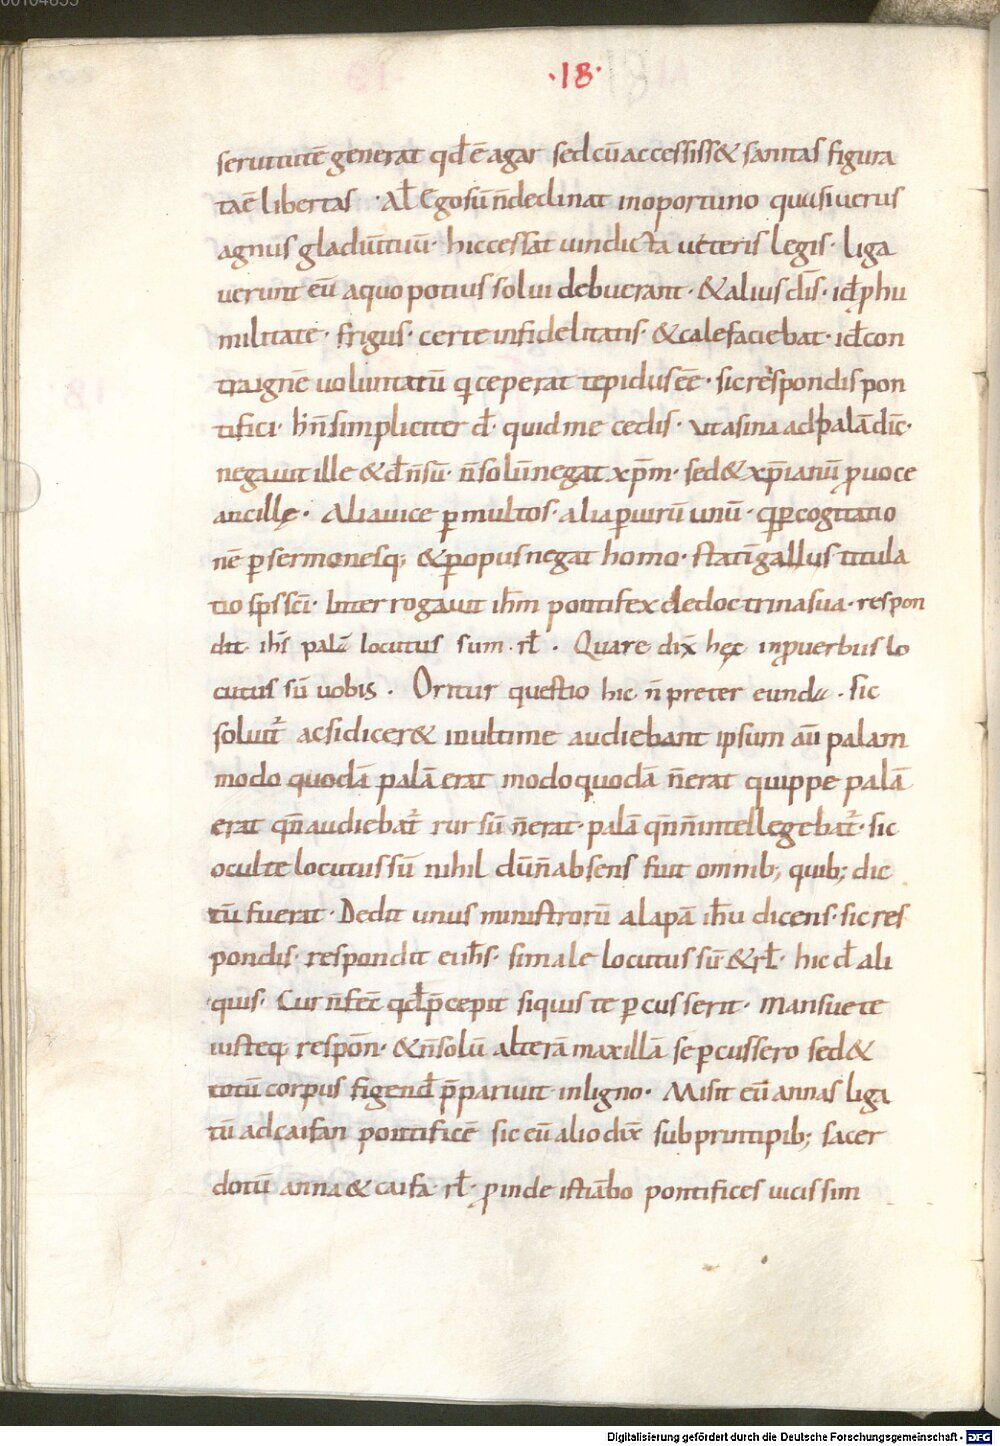 ·18·
seruitutē generat qđ ē agar sed cū accessiss& sanitas figura
ta ē libertas · Aƚ Ego sū n̄ declinat inoportuno quasi uerus
agnus gladiū tuū· hic cessat uindicta ueteris legis· liga
uerunt eū a quo potius solui debuerant· & alius dīs· id ꝑ hu
militate· frigus· certe infidelitatis· & calefaciebat· id con
tra ignē uoluntatū q ceperat tepidus eē· sic respondis pon
tifici· hn̄ simpliciter đ· quid me cedis· ut asina ad palā dic̄·
negauit ille & đ n̄ sū· n̄ solū negat xp̄m· sed & xp̄ianū ꝓ uoce
ancillę· Alia uice ꝑ multos· alia ꝑ uirū unū· q ꝑ cogitatio
nē ꝑ sermonesq; & ꝑ opus negat homo· statī gallus titula
tio sp̄s sc̄i· Interrogauit ih̄m pontifex de doctrina sua· respon
dit ih̄s palā locutus sum· rƚ· Quare dix̄ hęc in ꝓuerbiis lo
cutus sū uobis· Oritur questio hic n̄ preter eunda· sic
soluit̄ ac si dicer& multi me audiebant ipsum aū palam
modo quodā palā erat modo quodā n̄ erat quippe palā
erat qn̄ audiebat̄ rursū n̄ erat· palā qn̄ n̄ intellegebat̄· sic
oculte locutus sū nihil dū n̄ absens fuit omnib; quib; dic
tū fuerat· Dedit unus ministrorū alapā ih̄u dicens· sic res
pondis· respondit ei ih̄s· si male locutus sū & rƚ· hic đ ali
quis· Cur n̄ fec̄ qđ p̄cepit si quis te ꝑcusserit· Mansuete
iusteq; respon̄· & n̄ solū alterā maxillā se ꝑcussero sed &
totū corpus figend p̄parauit in ligno· Misit eū annas liga
tū ad caifan pontificē sic eū alio dix̄ sub principib; sacer
dotū anna & caifa· rƚ· ꝓinde isti ambo pontifices uicissim
Digitalisierung gefördert durch die Deutsche Forschungsgemeinschaft - DFG